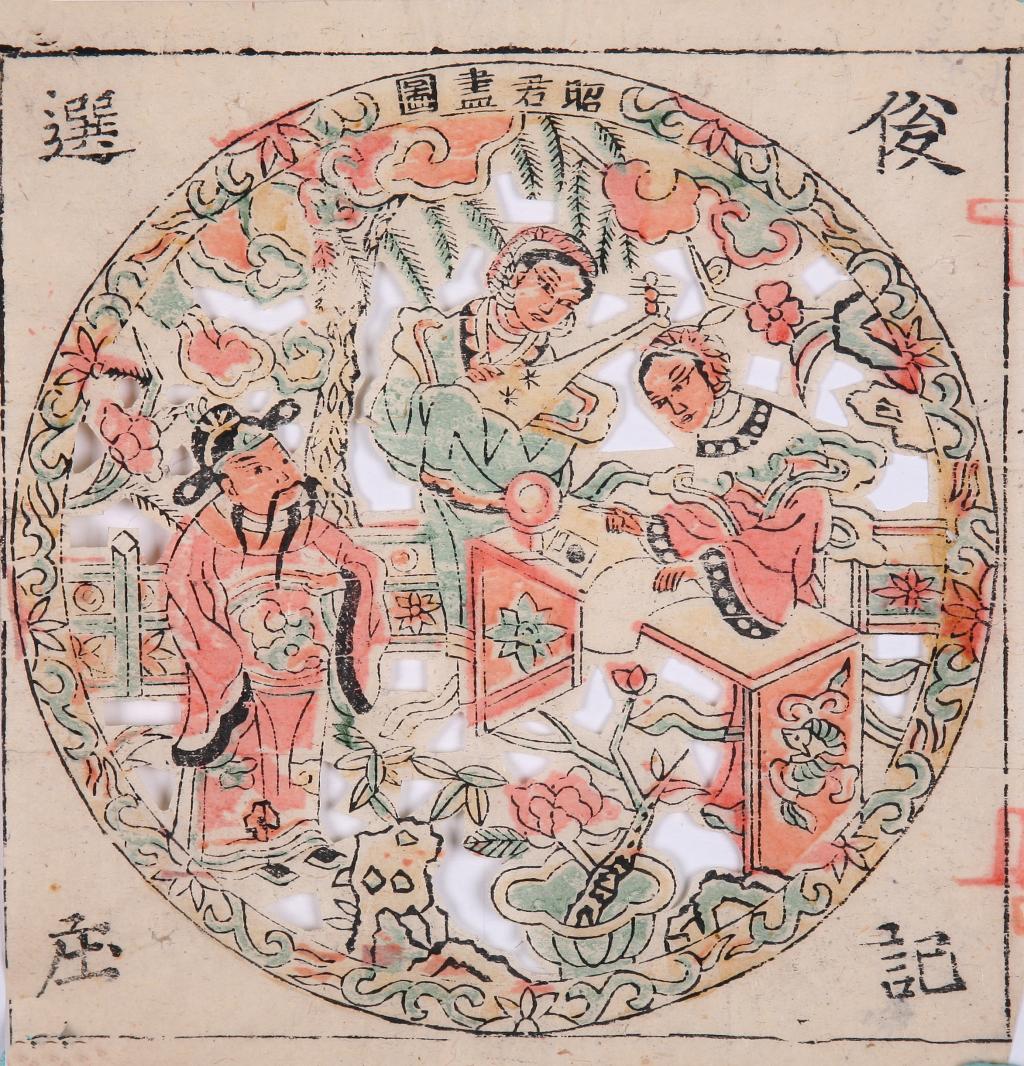 昭君畫圖
俊記
選庄